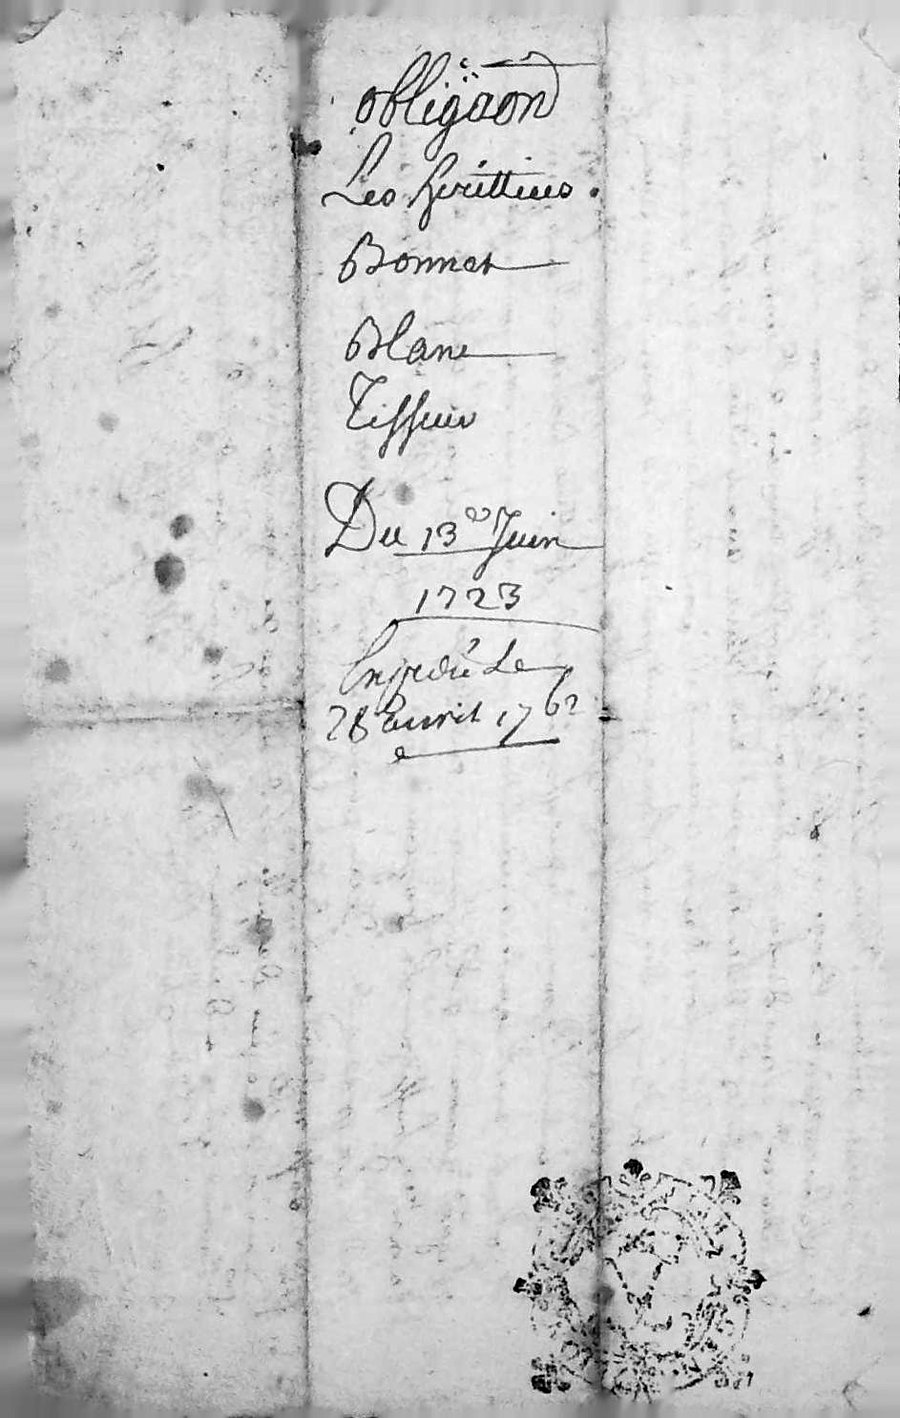 obligãon
Les heritiers
Bonnet
Blanc
Tisseur
Du 13e Juin
1723
Expedié Le
28 avril 1762